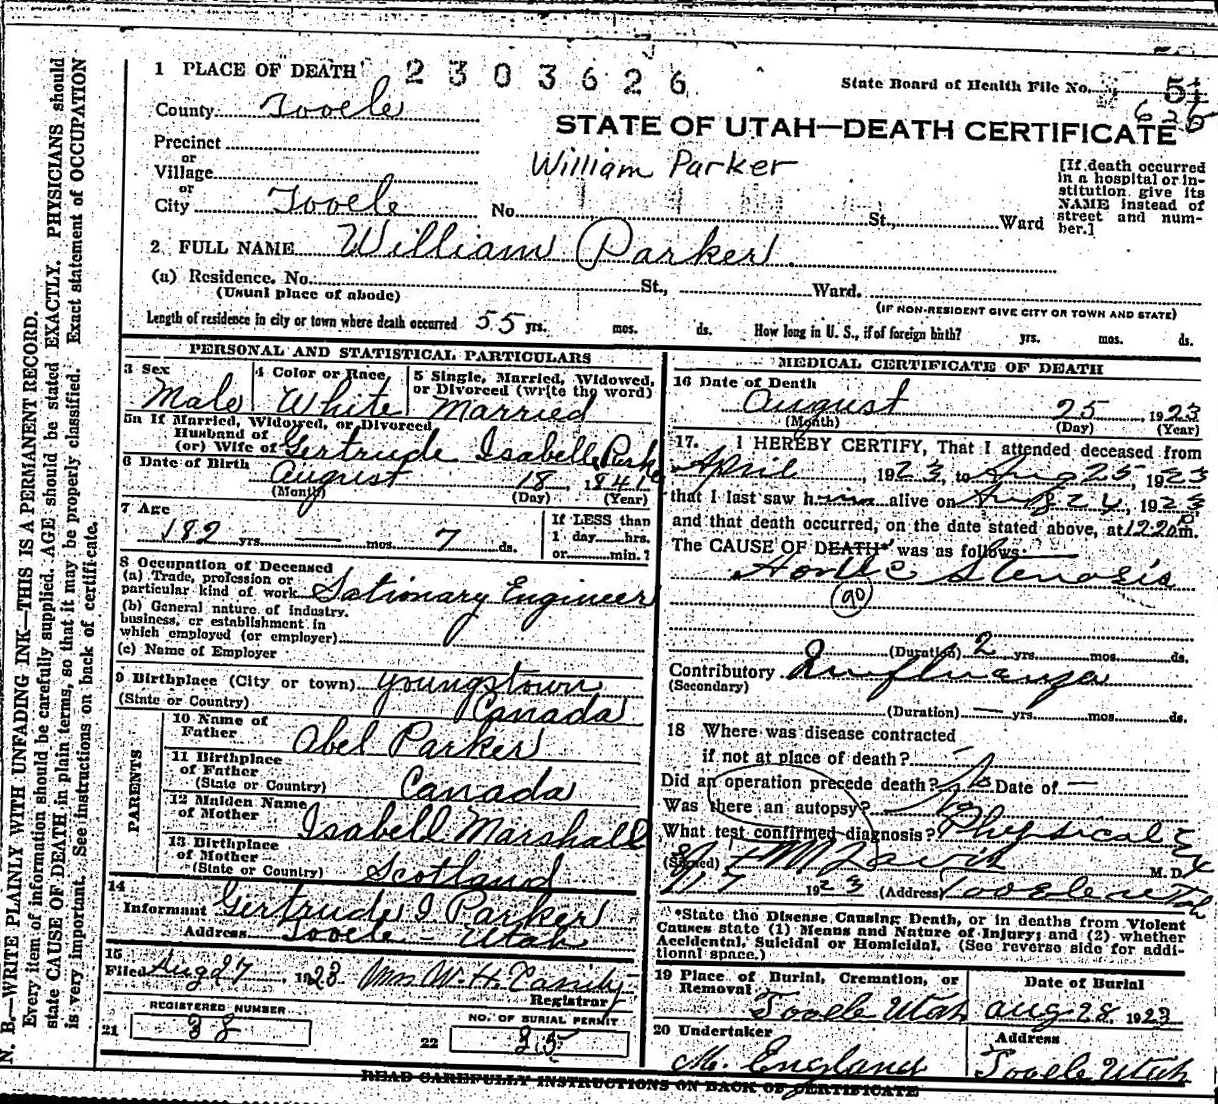 1 PLACE OF DEATH 2303626
State Board of Health File No. 51
626
County Tooele
STATE OF UTAH—DEATH CERTIFICATE
Precinct
or
Village
or
City Tooele No. St., Ward
William Parker
[If death occurred in a hospital or institution give its NAME instead of street and number.]
2 FULL NAME William Parker.
(a) Residence. No. St., Ward.
(Usual place of abode) (IF NON-RESIDENT GIVE CITY OR TOWN AND STATE)
Length of residence in city or town where death occurred 55 yrs. mos. ds. How long in U. S., if of foreign birth? yrs. mos. ds.
PERSONAL AND STATISTICAL PARTICULARS
3 Sex Male
4 Color or Race White
5 Single, Married, Widowed, or Divorced (write the word) Married
5a If Married, Widowed, or Divorced
Husband of
(or) Wife of Gertrude Isabell Park
6 Date of Birth August 18, 1841
(Month) (Day) (Year)
7 Age
182 yrs. — mos. 7 ds.
If LESS than
1 day hrs.
or min.?
8 Occupation of Deceased
(a) Trade, profession or
particular kind of work Sationary Engineer
(b) General nature of industry.
business, or establishment in
which employed (or employer)
(c) Name of Employer
9 Birthplace (City or town) Youngstown
(State or Country) Canada
PARENTS
10 Name of
Father Abel Parker
11 Birthplace
of Father
(State or Country) Canada
12 Maiden Name
of Mother Isabell Marshall
13 Birthplace
of Mother
(State or Country) Scotland
14
Informant Gertrude I Parker
Address Tooele - Utah
15
Filed Aug 27, 1923 Mrs W. H. Cassity
Registrar
REGISTERED NUMBER
21 38
NO. OF BURIAL PERMIT
22 35
MEDICAL CERTIFICATE OF DEATH
16 Date of Death
August 25, 1923
(Month) (Day) (Year)
17. I HEREBY CERTIFY, That I attended deceased from
April, 1923, to Aug 25, 1923
that I last saw him alive on Aug 24, 1923
and that death occurred, on the date stated above, at 12:20 p m.
The CAUSE OF DEATH* was as follows:
Aortic Stenosis
90
(Duration) 2 yrs. mos. ds.
Contributory Influenza
(Secondary)
(Duration) — yrs. mos. ds.
18 Where was disease contracted
if not at place of death? —
Did an operation precede death? No Date of —
Was there an autopsy? No
What test confirmed diagnosis? Physical Ex
(Signed) M Davis M. D.
1923 (Address) Tooele Utah
*State the Disease Causing Death, or in deaths from Violent
Causes state (1) Means and Nature of Injury; and (2) whether
Accidental, Suicidal or Homicidal. (See reverse side for additional space.)
19 Place of Burial, Cremation, or
Removal Tooele Utah
Date of Burial
Aug 28 1923
20 Undertaker
M. England
Address
Tooele Utah
READ CAREFULLY INSTRUCTIONS ON BACK OF CERTIFICATE
N. B.—WRITE PLAINLY WITH UNFADING INK—THIS IS A PERMANENT RECORD.
Every item of information should be carefully supplied. AGE should be stated EXACTLY. PHYSICIANS should
state CAUSE OF DEATH in plain terms, so that it may be properly classified. Exact statement of OCCUPATION
is very important. See instructions on back of certificate.